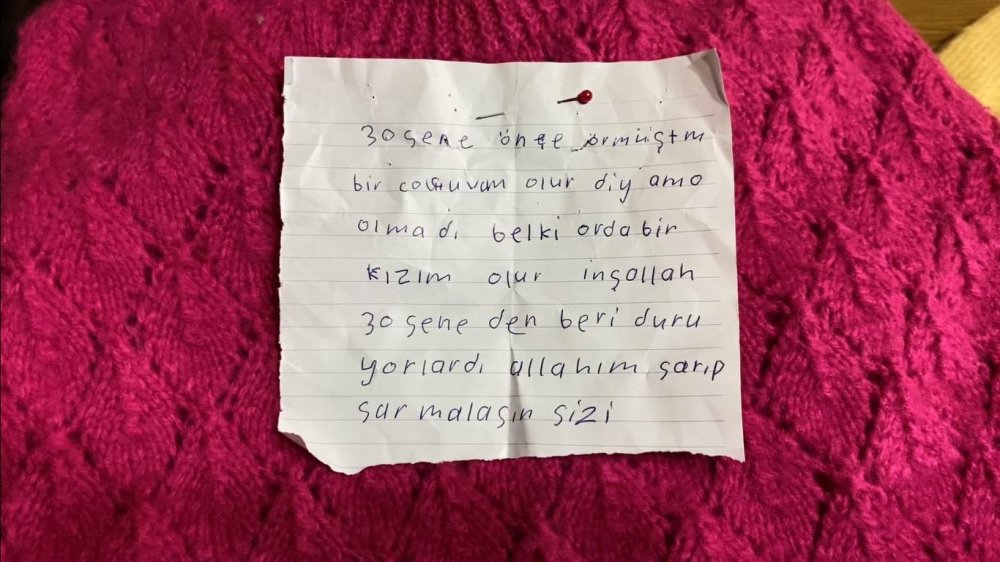 30 şene önçe örmüştm
bir coçuvum olur diy ama
olmadı belki orda bir
kızım olur inşallah
30 şene den beri duru
yorlardı allahım şarıp
şar malaşın şizi